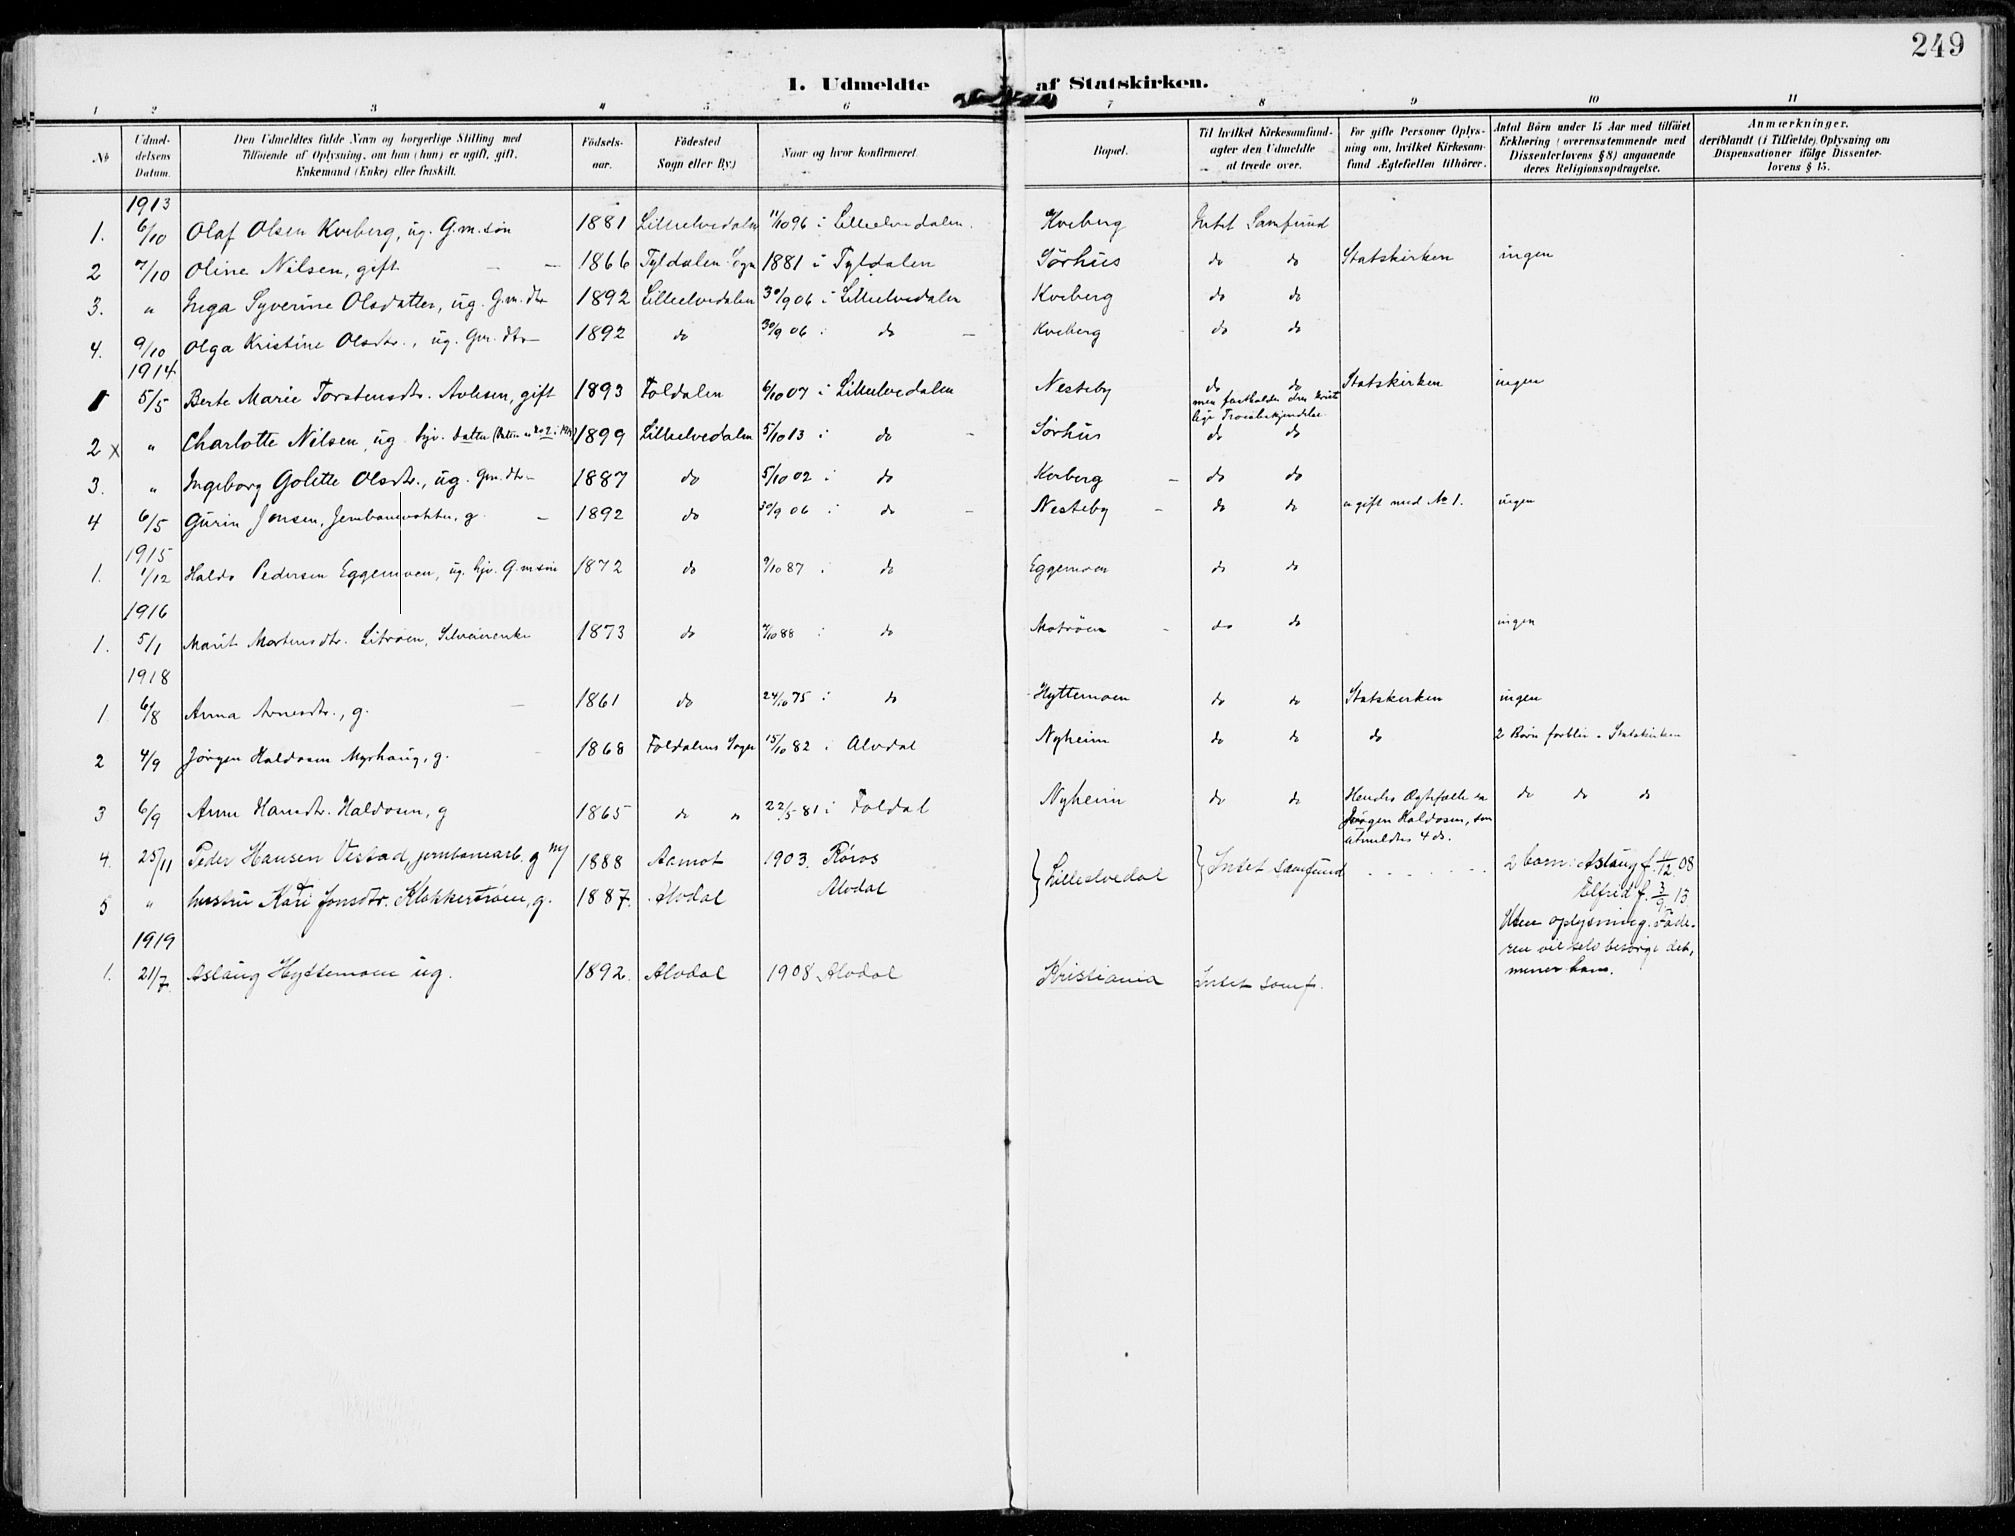 249
I. Udmeldte af Statskirken.
1 2 3 4 5 6 7 8 9 10 11
№
Udmel-
delsens
Datum.
Den Udmeldtes fulde Navn og borgerlige Stilling med
Tilföiende af Oplysning, om han (hun) er ugift, gift,
Enkemand (Enke) eller fraskilt.
Födsels-
aar.
Födested
Sogn eller By.)
Naar og hvor konfirmeret.
Bopæl.
Til hvilket Kirkesamfund-
agter den Udmeldte
at træde over.
For gifte Personer Oplys-
ning om, hvilket Kirkesam-
fund Ægtefællen tilhörer.
Antal Börn under 15 Aar med tilföiet
Erklæring (overensstemmende med
Dissenterlovens § 8) angaaende
deres Religionsopdragelse.
Anmærkninger,
deriblandt (i Tilfælde) Oplysning om
Dispensationer ifölge Dissenter-
lovens § 15.
1913
1. 6/10 Olaf Olsen Kveberg, ug. G.m.sön 1881 Lilleelvedalen 11/10 96 i Lilleelvedalen. Kveberg Intet Samfund
2 7/10 Oline Nilsen, gift — — 1866 Tyldalen Sogn 1881 i Tyldalen Sörhus do do Statskirken ingen
3. " Inga Syverine Olsdatter, ug. G.m. dtr 1892 Lilleelvedalen 30/9 06 i Lilleelvedalen Kveberg do do
4. 9/10 Olga Kristine Olsdtr., ug. Gm. dtr — 1892 do 30/9 06 i do — Kveberg do do
1914
1 5/5 Berte Marie Torstensdtr. gift 1893 Foldalen 6/10 07 i Lilleelvedalen Nesteby do do Statskirken ingen
men fastholder den krist
lige Troesbekjendelse
2 x " Charlotte Nilsen, ug. 1899 Lilleelvedalen 5/10 13 i do — Sörhus do do
3. " Ingeborg Golette Olsdtr., ug. Gm. dtr — 1887 do 5/10 02 i do Kveberg — do do
4 6/5 Gurin Jonsen, g. — 1892 do 30/9 06 i do — Nesteby — do do " gift med № 1. ingen
1915
1. 1/12 Haldo Pedersen Eggemoen, ug. hjv. G.m sön 1872 do 9/10 87 i do Eggemoen do do
1916
1. 5/1 Marit Mortensdtr. Litröen, 1873 do 7/10 88 i do Moströen — do do ingen
1918
1 6/8 Anna Arnesdtr., g. — 1861 do 24/10 75 i do Hyttemoen do do Statskirken ingen
2 4/9 Jörgen Haldosen Myrhaug, g. 1868 Foldalens Sogn 15/10 82 i Alvdal Nyheim do do do 2 Börn forblir i Statskirken
3 6/9 Anne Hansdtr. Haldosen, g 1865 do " 22/5 81 i Foldal Nyheim do do Hendes Ægtefælle er do do do
Jörgen Haldosen, som
utmeldtes 4 ds.
4. 25/11 Peder Hansen Vestad, jernbanearb. g m/ 1888 Aamot 1903. Röros Lilleelvedal Intet samfund - - - - - - - 2 barn: Aslaug f. 11/12 08
5 " hustru Kari Jonsdtr. Klokkerströen, g. 1887. Alvdal Alvdal Elfred f. 3/9 13
Uten oplysning. Fade-
ren vil selv besörge det,
mener han.
1919
1. 21/7 Aslaug Hyttemoen ug. 1892. Alvdal 1908 Alvdal Kristiania Intet samf.